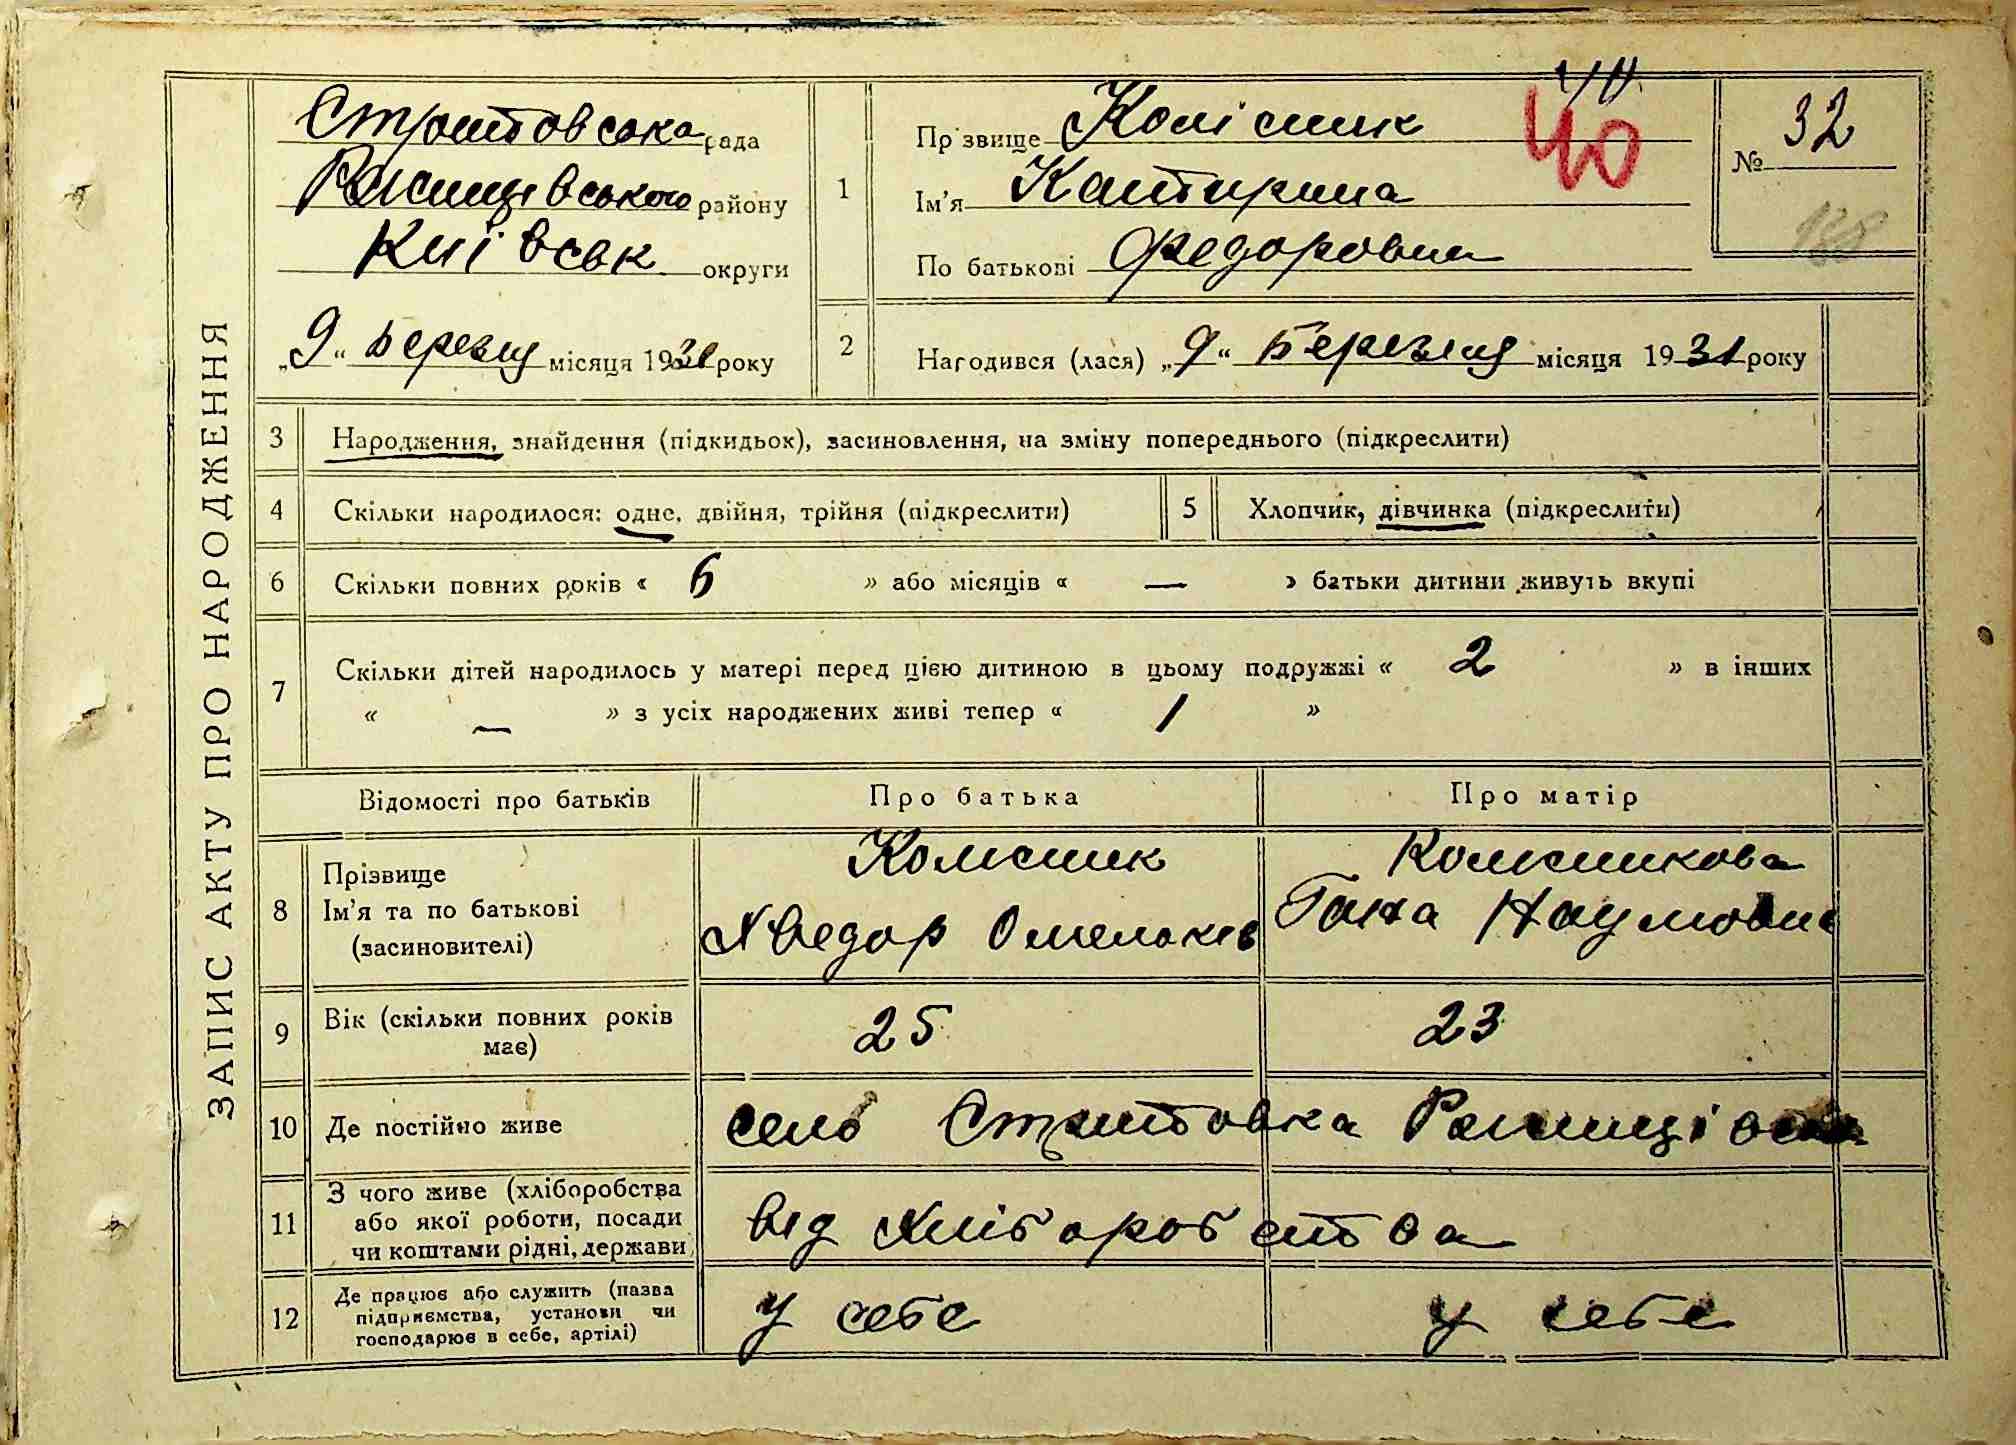 ЗАПИС АКТУ ПРО НАРОДЖЕННЯ
Стритовська рада
Ржищівського району
Київськ округи
„9“ Березня місяця 1931 року
1
Прізвище Колісник
Ім'я Катирина
По батькові Федоровна
40
40
№ 32
188
2
Народився (лася) „9“ Березня місяця 1931 року
3 Народження, знайдення (підкидьок), засиновлення, на зміну попереднього (підкреслити)
4 Скільки народилося: одне, двійня, трійня (підкреслити)
5 Хлопчик, дівчинка (підкреслити)
6 Скільки повних років « 6 » або місяців « — » батьки дитини живуть вкупі
7 Скільки дітей народилось у матері перед цією дитиною в цьому подружжі « 2 » в інших
« — » з усіх народжених живі тепер « 1 »
Відомості про батьків Про батька Про матір
8
Прізвище Колисник Колисникова
Ім'я та по батькові
(засиновителі) Хведор Омельків Гана Наумовна
9 Вік (скільки повних років має) 25 23
10 Де постійно живе село Стритовка
11 З чого живе (хліборобства
або якої роботи, посади
чи коштами рідні, держави
від хліборобства
12 Де працює або служить (назва
підприємства, установи чи
господарює в себе, артілі)
у себе у себе